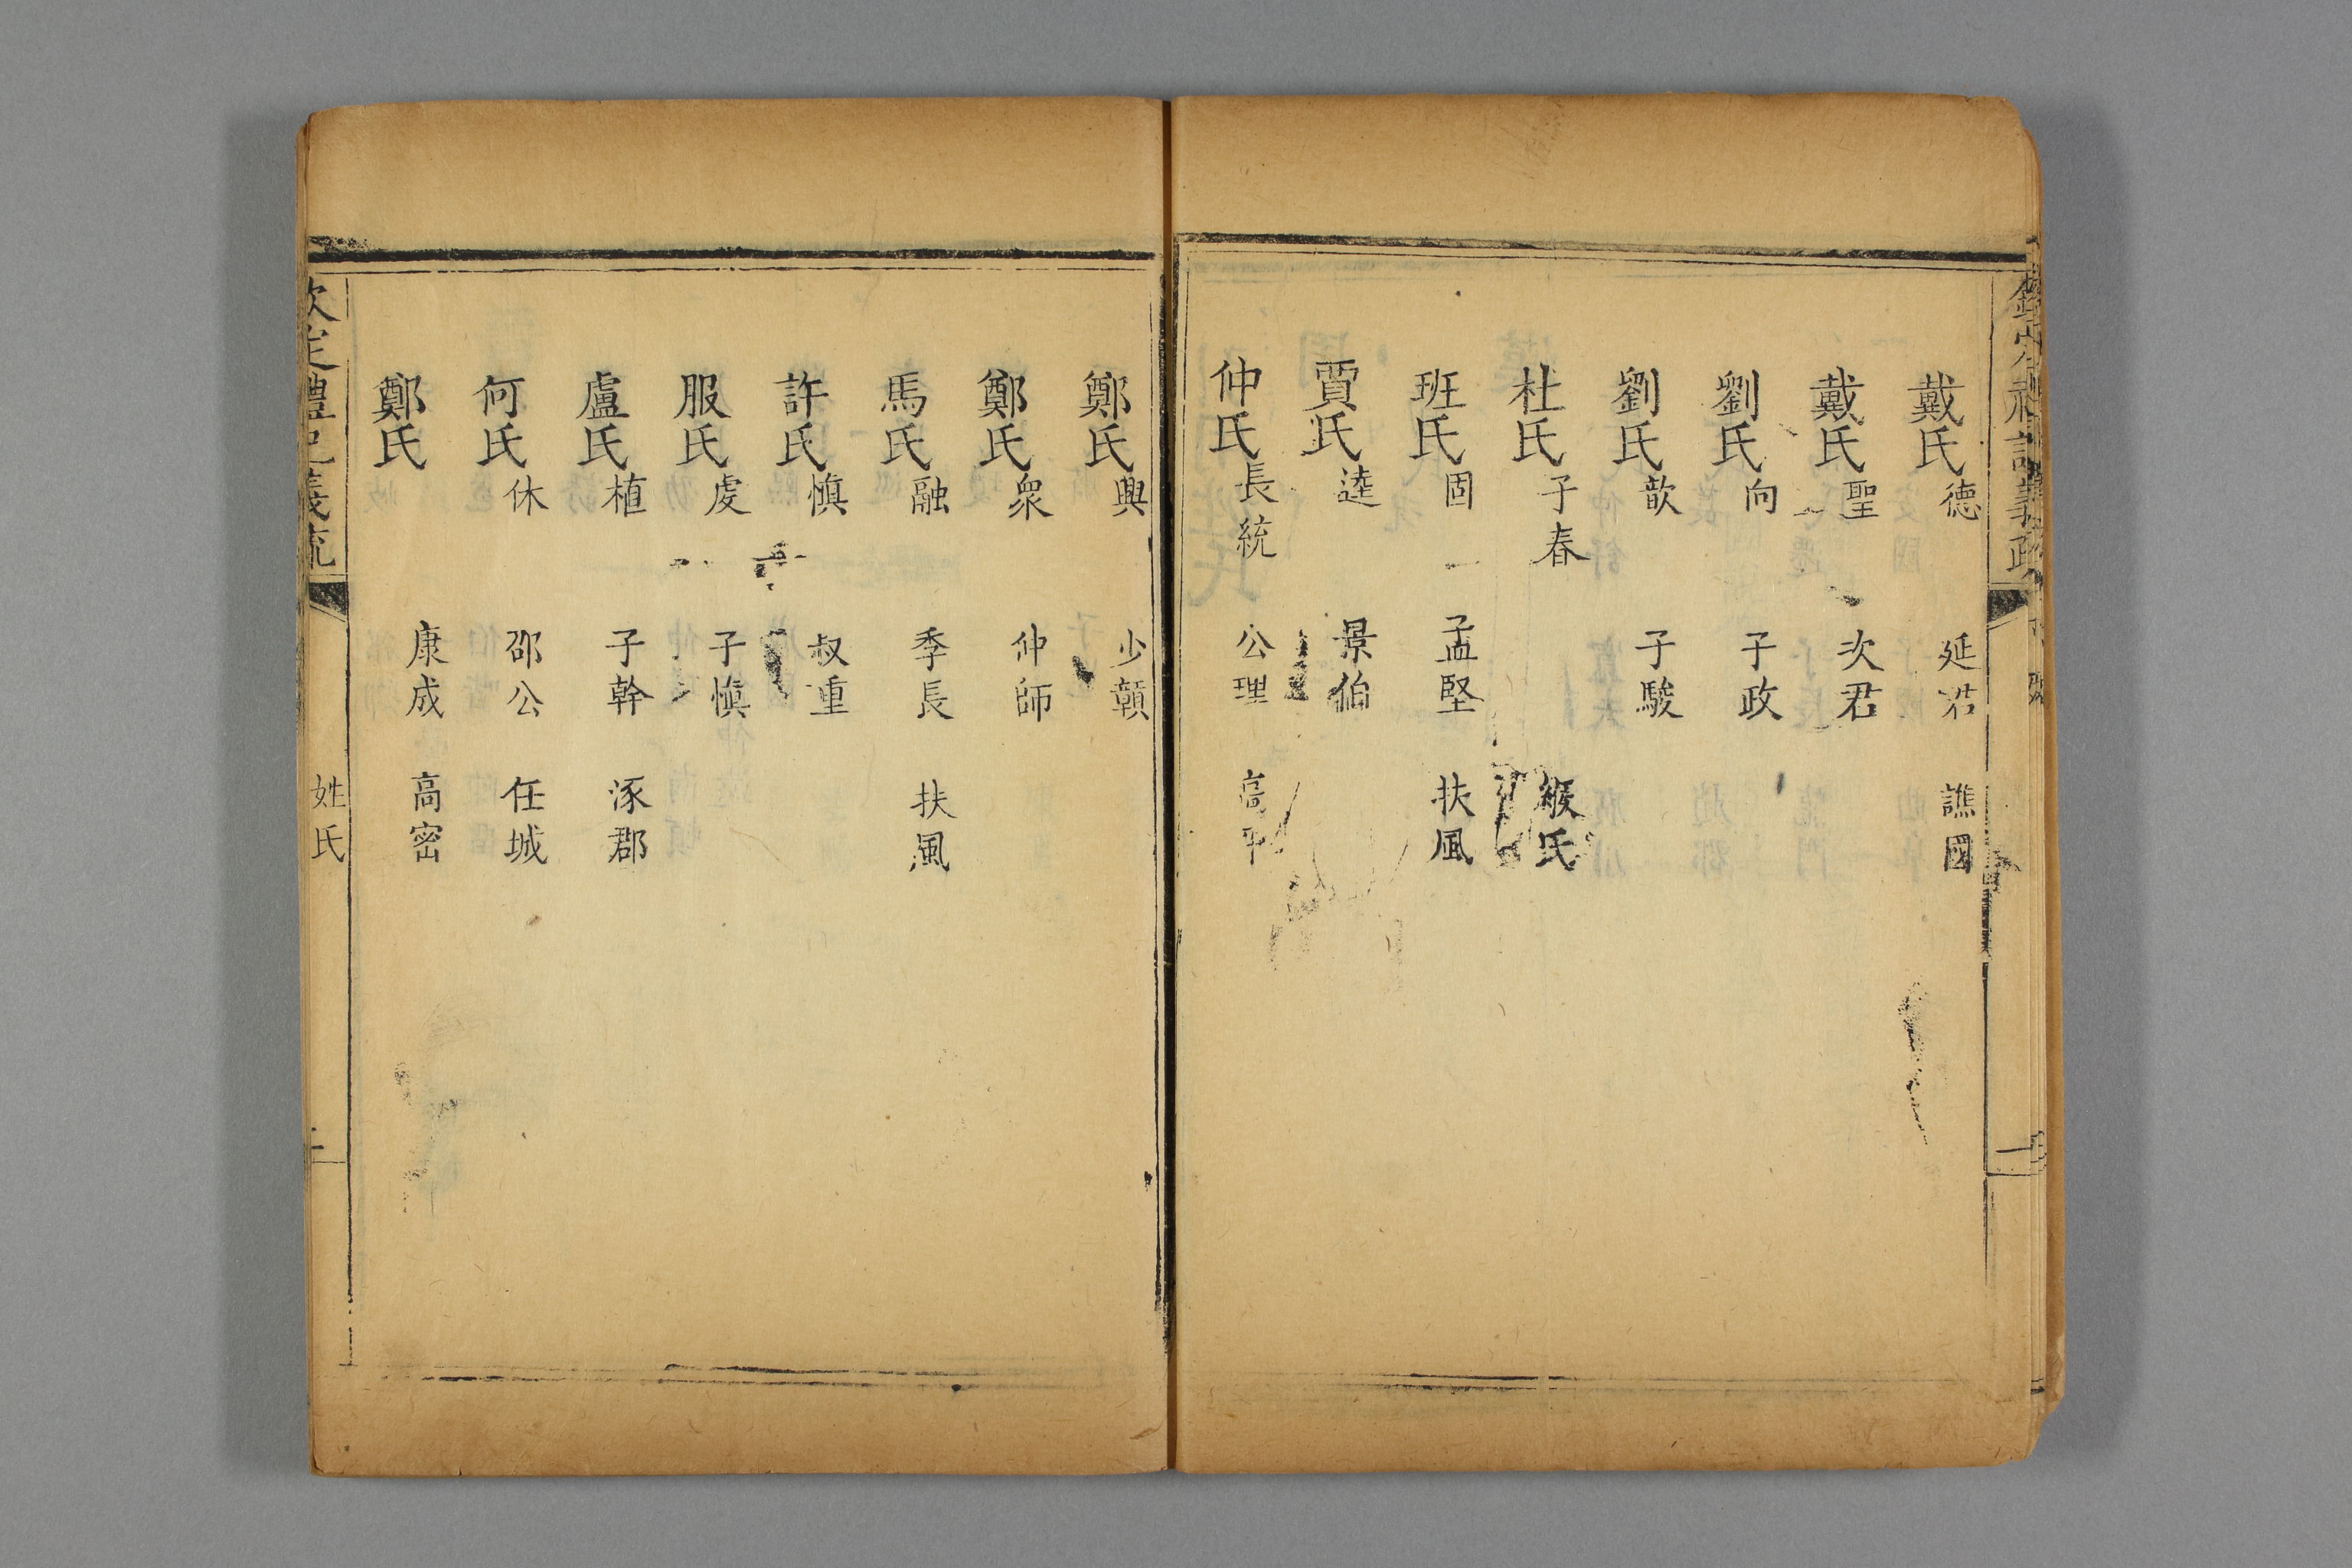 戴氏德 延君 譙國
戴氏聖 次君
劉氏向 子政
劉氏歆 子駿
杜氏子春 緱氏
班氏固 孟堅 扶風
賈氏逵 景伯
仲氏長統 公理 高平
鄭氏興 少贛
鄭氏衆 仲師
馬氏融 季長 扶風
許氏慎 叔重
服氏虔 子慎
盧氏植 子幹 涿郡
何氏休 邵公 任城
鄭氏 康成 高密
欽定禮記義疏 姓氏 二